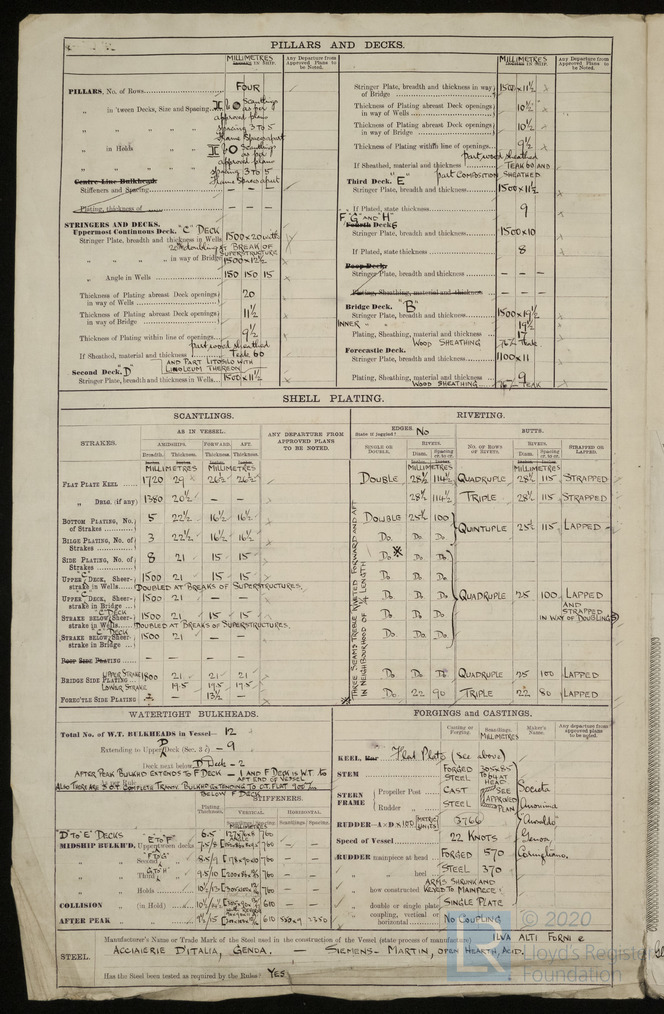 PILLARS AND DECKS.
MILLIMETRES
IN SHIP.
Any Departure from Approved Plans to be Noted.
PILLARS, No. of Rows FOUR
„ in 'tween Decks, Size and Spacing Scantlings as per approved plan spacing 3 to 5 Frame Spaces apart
„ in Holds Scantlings as per approved plan spacing 3 to 5 Frame Spaces apart
Centre Line Bulkhead.
Stiffeners and Spacing – – –
Plating, thickness of – – –
STRINGERS AND DECKS.
Uppermost Continuous Deck. "C" DECK
Stringer Plate, breadth and thickness in Wells 1500 x 20 with
20 doubling AT BREAK OF SUPERSTRUCTURE
„ „ in way of Bridge 1500 x 12½
„ Angle in Wells 150 150 15
Thickness of Plating abreast Deck openings in way of Wells 20
Thickness of Plating abreast Deck openings in way of Bridge 11½
Thickness of Plating within line of openings 9½
part wood sheathed
If Sheathed, material and thickness Teak 60
AND PART LITOSILO WITH LINOLEUM THEREON
Second Deck. "D"
Stringer Plate, breadth and thickness in Wells 1500 x 11½
MILLIMETRES
IN SHIP.
Any Departure from Approved Plans to be Noted.
Stringer Plate, breadth and thickness in way of Bridge 1500 x 11½
Thickness of Plating abreast Deck openings in way of Wells 10½
Thickness of Plating abreast Deck openings in way of Bridge 10½
Thickness of Plating within line of openings 9½
part wood sheathed
If Sheathed, material and thickness TEAK 60 AND
part COMPOSITION SHEATHED
Third Deck. "E"
Stringer Plate, breadth and thickness 1500 x 11½
If Plated, state thickness 9
F, "G" AND "H"
Fourth Decks
Stringer Plate, breadth and thickness 1500 x 10
If Plated, state thickness 8
Poop Deck.
Stringer Plate, breadth and thickness – – –
Plating, Sheathing, material and thickness – – –
Bridge Deck. "B"
Stringer Plate, breadth and thickness 1500 x 19½
INNER „ „ 19½
Plating, Sheathing, material and thickness 17
WOOD SHEATHING 76 Teak
Forecastle Deck.
Stringer Plate, breadth and thickness 1100 x 11
Plating, Sheathing, material and thickness 9
WOOD SHEATHING 76 TEAK
SHELL PLATING.
SCANTLINGS.
RIVETING.
STRAKES.
AS IN VESSEL.
AMIDSHIPS.
FORWARD.
AFT.
Breadth.
Thickness.
Thickness.
Thickness.
ANY DEPARTURE FROM APPROVED PLANS TO BE NOTED.
EDGES.
State if joggled? No
SINGLE OR DOUBLE.
RIVETS.
Diam.
Spacing cr. to cr.
BUTTS.
NO. OF ROWS OF RIVETS.
RIVETS.
Diam.
Spacing cr. to cr.
STRAPPED OR LAPPED.
MILLIMETRES MILLIMETRES MILLIMETRES MILLIMETRES
FLAT PLATE KEEL 1720 29 26½ 26½ DOUBLE 28½ 114½ QUADRUPLE 28½ 115 STRAPPED
„ DBLG. (if any) 1380 20½ – – 28½ 114½ TRIPLE 28½ 115 STRAPPED
BOTTOM PLATING, No. of Strakes 5 22½ 16½ 16½ DOUBLE 25½ 100
QUINTUPLE 25½ 115 LAPPED
BILGE PLATING, No. of Strakes 3 22½ 16½ 16½ Do. Do Do
SIDE PLATING, No. of Strakes 8 21 15 15 Do Do Do
UPPER "C" DECK, Sheerstrake in Wells 1500 21 15 15 Do Do Do
DOUBLED AT BREAKS OF SUPERSTRUCTURES.
UPPER "C" DECK, Sheerstrake in Bridge 1500 21 – – Do Do Do
QUADRUPLE 25 100 LAPPED AND STRAPPED IN WAY OF DOUBLINGS
"C" DECK
STRAKE BELOW Sheerstrake in Wells 1500 21 15 15 Do Do Do
DOUBLED AT BREAKS OF SUPERSTRUCTURES.
"C" DECK
STRAKE BELOW Sheerstrake in Bridge 1500 21 Do. Do. Do.
POOP SIDE PLATING – –
UPPER STRAKE
BRIDGE SIDE PLATING 1800 21 21 21 Do Do Do QUADRUPLE 25 100 LAPPED
LOWER STRAKE 19.5 19.5 19.5
FORE'C'TLE SIDE PLATING – 13½ Do 22 90 TRIPLE 22 80 LAPPED
THREE SEAMS TREBLE RIVETED FORWARD AND AFT IN NEIGHBOURHOOD OF ¼ LENGTH
WATERTIGHT BULKHEADS.
Total No. of W.T. BULKHEADS in Vessel— 12
Extending to Upper Deck (Sec. 3 c) – 9
"D"
Deck next below D Deck – 2
AFTER PEAK BULKHD EXTENDS TO F DECK – 1 AND F DECK IS W.T. TO AFT END OF VESSEL
As per Rule
BELOW F DECK
STIFFENERS.
Plating Thickness.
VERTICAL.
HORIZONTAL.
Scantlings. Spacing.
MILLIMETRES
"D" TO "E" DECKS 6.5 760 –
MIDSHIP BULKH'D, Upper tween decks "E" TO "F" 7.5/8 760 –
„ Second „ "F" TO "G" 8.5/9 760 –
„ Third „ "G" TO "H" 9.5/10 760 –
„ Holds 760 –
COLLISION „ (in Hold) 610 –
AFTER PEAK „ „ 610
FORGINGS and CASTINGS.
Casting or Forging.
Scantlings.
MILLIMETRES
Maker's Name.
Any departure from approved plans to be noted.
KEEL, Bar Flat Plate (see above)
STEM FORGED STEEL 305x85 TO 64 AT HEAD
STERN FRAME
Propeller Post CAST
Rudder „ STEEL
SEE APPROVED PLAN
Società Anonima "Ansaldo" Genova Cornigliano.
RUDDER—A x D x 100 (METRIC UNITS) 3766
Speed of Vessel 22 KNOTS
RUDDER mainpiece at head FORGED 570
„ „ heel STEEL 370
„ how constructed ARMS SHRUNK AND KEYED TO MAINPIECE
„ double or single plate SINGLE PLATE
„ coupling, vertical or horizontal NO COUPLING
STEEL.
Manufacturer's Name or Trade Mark of the Steel used in the construction of the Vessel (state process of manufacture) ILVA ALTI FORNI e
ACCIAIERIE D'ITALIA, GENOA. – SIEMENS-MARTIN, OPEN HEARTH, ACID.
Has the Steel been tested as required by the Rules? YES
© 2020
Lloyd's Register
Foundation